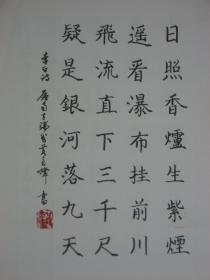 日照香爐生紫煙
遥看瀑布挂前川
飛流直下三千尺
疑是銀河落九天
李白詩